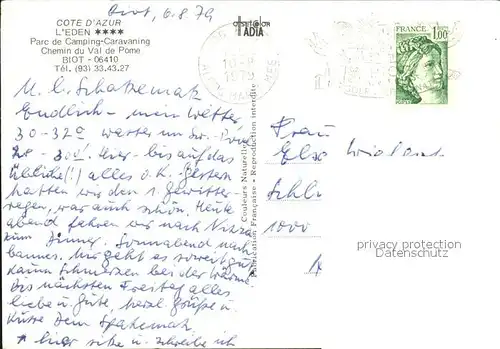 Biot, 6.8.79
COTE D'AZUR
L'EDEN ★★★★
Parc de Camping-Caravaning
Chemin du Val de Pome
BIOT - 06410
Tél. (93) 33.43.27
ADIA
FRANCE 1,00
M. l. Schatzemak
Endlich - mein Wetter
30-32° Wasser
28-30°! Hier - bis auf das
übliche(!) alles o.k. Gestern
hatten wir den 1. Gewitter-
regen, war auch schön. Heute
abend fahren wir nach Nizza
zum Dinner. Sonnabend nach
Cannes. Mir geht es soweit gut
kaum Schmerzen bei der Wärme.
Bis nächsten Freitag alles
liebe u. Gute, herzl. Grüße u.
Küsse Dein
* hier sitze u. schreibe ich
Couleurs Naturelles
Fabrication Française - Reproduction interdite
Frau
1000
privacy protection
Datenschutz